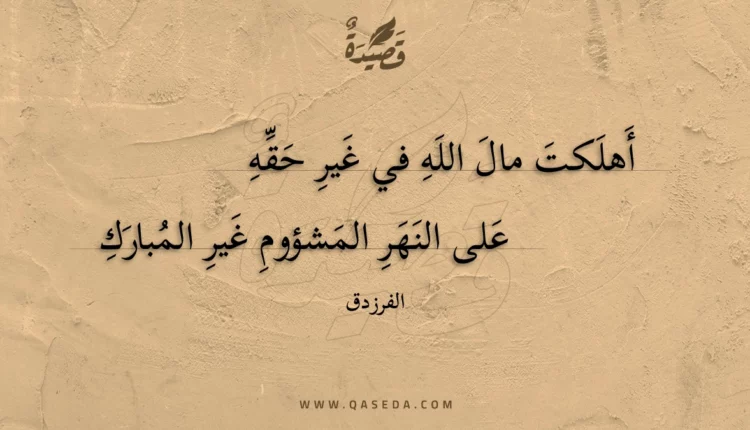 قَصِيدَةٌ
أَهلَكتَ مالَ اللَهِ في غَيرِ حَقِّهِ
عَلى النَهَرِ المَشؤومِ غَيرِ المُبارَكِ
الفرزدق
WWW.QASEDA.COM